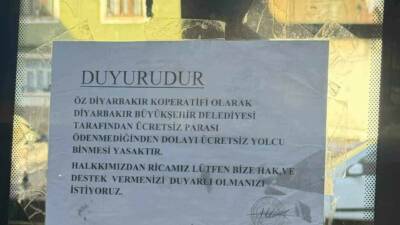 DUYURUDUR
ÖZ DİYARBAKIR KOPERATİFİ OLARAK
DİYARBAKIR BÜYÜKŞEHİR BELEDİYESİ
TARAFINDAN ÜCRETSİZ PARASI
ÖDENMEDİĞİNDEN DOLAYI ÜCRETSİZ YOLCU
BİNMESİ YASAKTIR.
HALKKIMIZDAN RİCAMIZ LÜTFEN BİZE HAK,VE
DESTEK VERMENİZİ DUYARLI OLMANIZI
İSTİYORUZ.